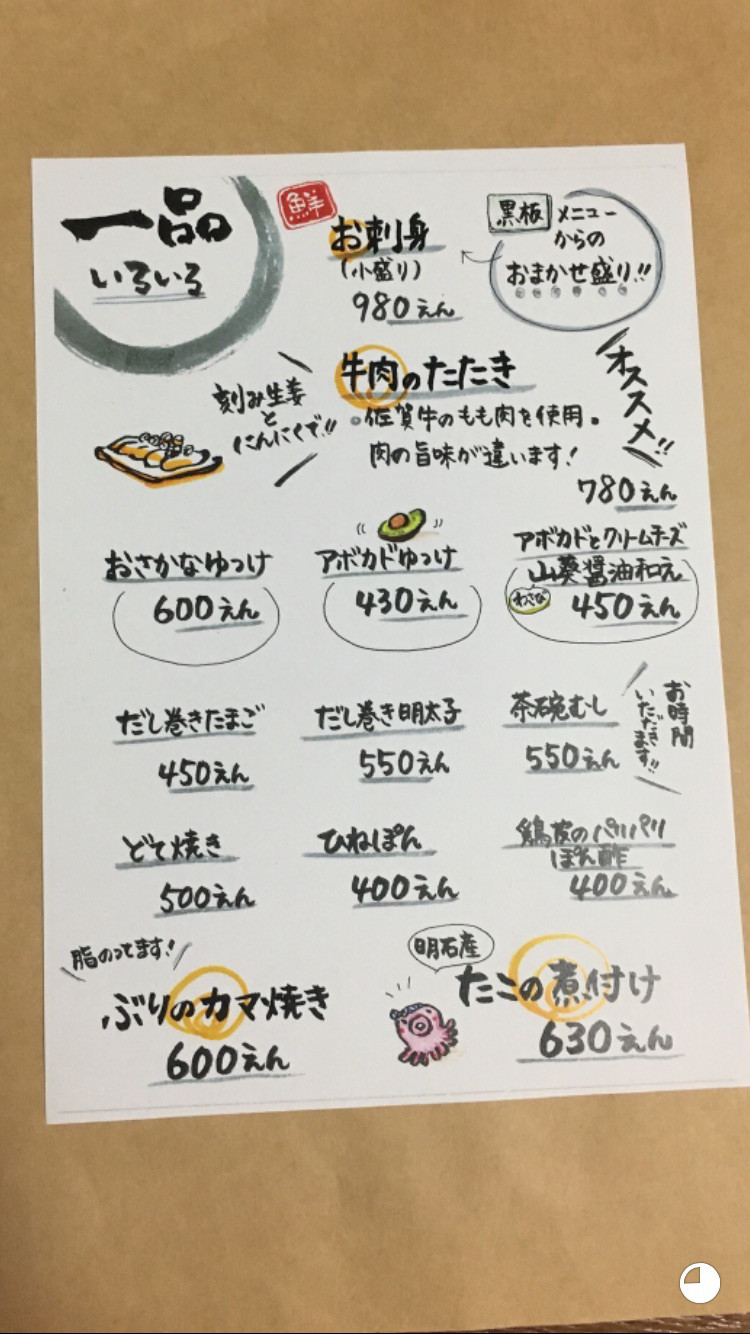 一品
いろいろ
鮮
お刺身
(小盛り)
980えん
黒板 メニュー
からの
おまかせ盛り!!
牛肉のたたき
刻み生姜
と
にんにくで!!
佐賀牛のもも肉を使用。
肉の旨味が違います!
オススメ!!
780えん
おさかなゆっけ
600えん
アボカドゆっけ
430えん
アボカドとクリームチーズ
山葵醤油和え
わさび
450えん
だし巻きたまご
450えん
だし巻き明太子
550えん
茶碗むし
550えん
お時間
いただきます!!
どて焼き
500えん
ひねぽん
400えん
鶏皮のパリパリ
ぽん酢
400えん
脂のってます!
ぶりのカマ焼き
600えん
明石産
たこの煮付け
630えん